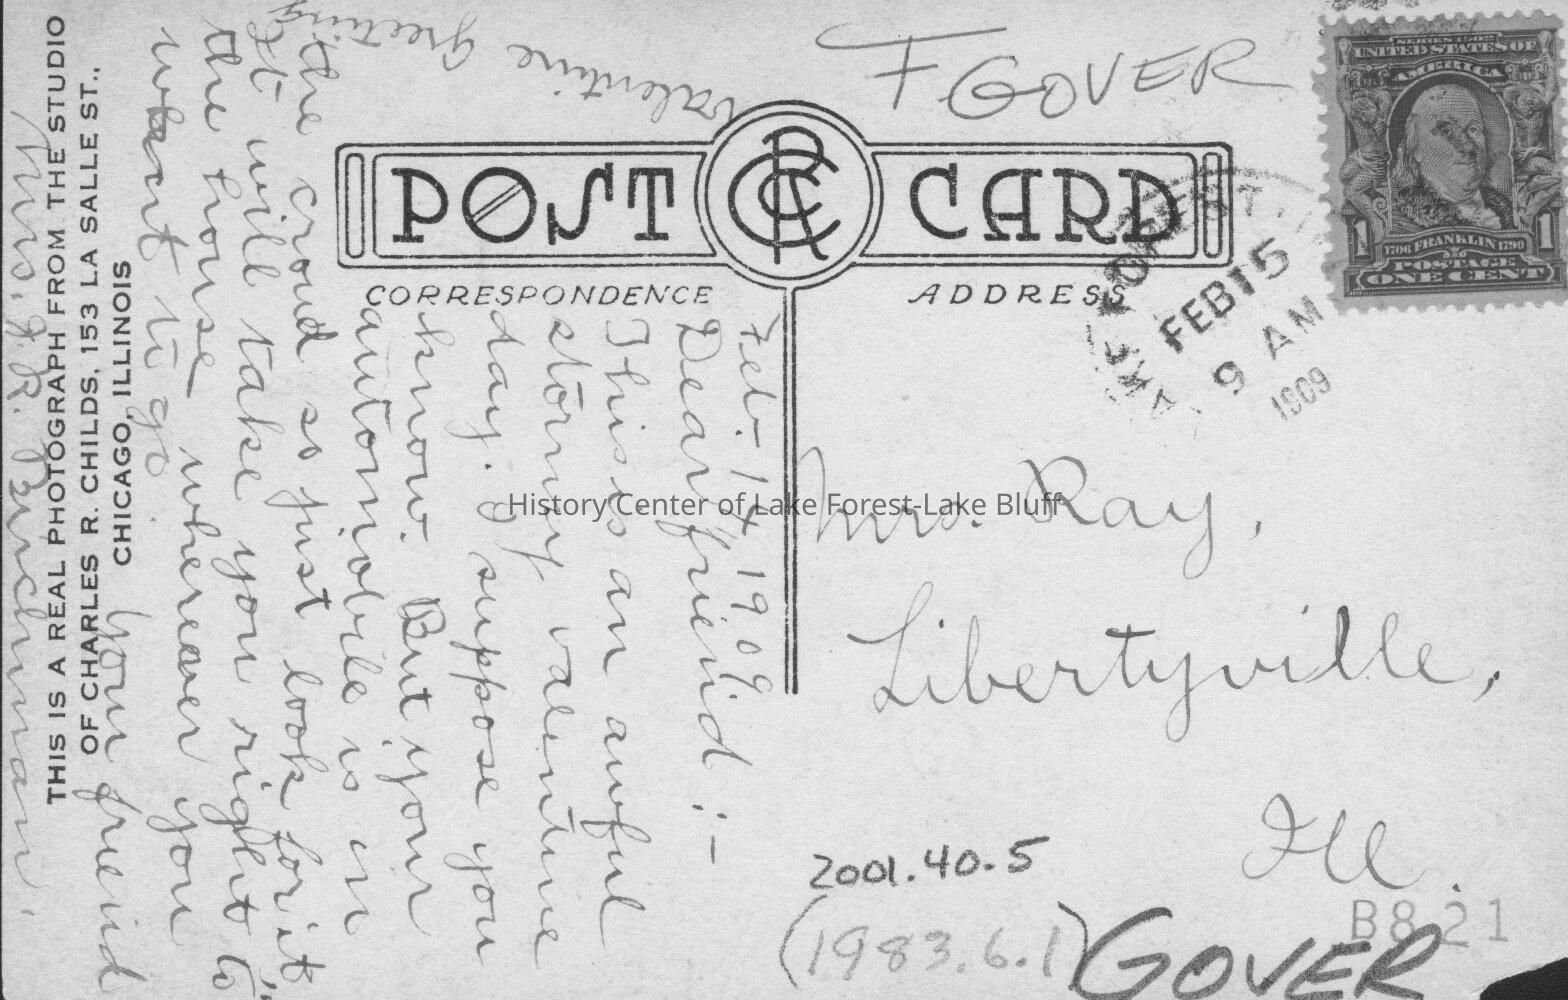 F GOVER
POST CARD
CRC
CORRESPONDENCE
ADDRESS
UNITED STATES OF
AMERICA
1 1
FRANKLIN
POSTAGE
ONE CENT
LAKE FOREST,
FEB 15
9 AM
1909
Mrs. Ray,
Libertyville,
Ill.
Feb. 14 1909.
Dear freind :-
This is an awful
stormy valentine
day. I suppose you
know. But your
automobile is in
the crowd so just look for it
It will take you right to
the house wherever you
want to go.
Your freind
Valentine Greeting
THIS IS A REAL PHOTOGRAPH FROM THE STUDIO
OF CHARLES R. CHILDS, 153 LA SALLE ST.,
CHICAGO, ILLINOIS
History Center of Lake Forest-Lake Bluff
2001.40.5
(1983.6.1)
GOVER
B821